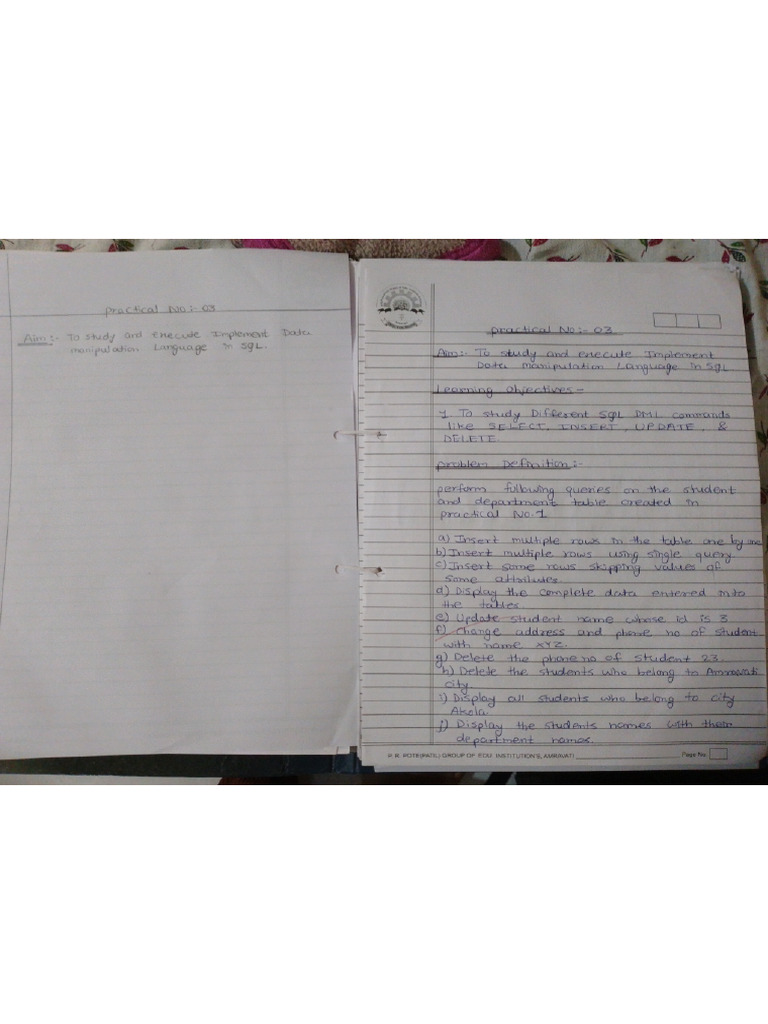 practical No:- 03
Aim:- To study and execute Implement Data
manipulation Language in SQL.
practical No:- 03
Aim:- To study and execute Implement
Data manipulation Language in SQL
Learning objectives:-
1. To study Different SQL DML commands
like SELECT, INSERT, UPDATE, &
DELETE.
problem Definition:-
perform following queries on the student
and department table created in
practical No.1
a) Insert multiple rows in the table one by one
b) Insert multiple rows using single query.
c) Insert some rows skipping values of
some attributes.
d) Display the complete data entered into
the tables.
e) Update student name whose id is 3
f) change address and phone no of student
with name XYZ.
g) Delete the phone no of student 23.
h) Delete the students who belong to Amravati
city.
i) Display all students who belong to city
Akola
j) Display the students names with their
department names.
P. R. POTE(PATIL) GROUP OF EDU. INSTITUTION'S, AMRAVATI Page No.